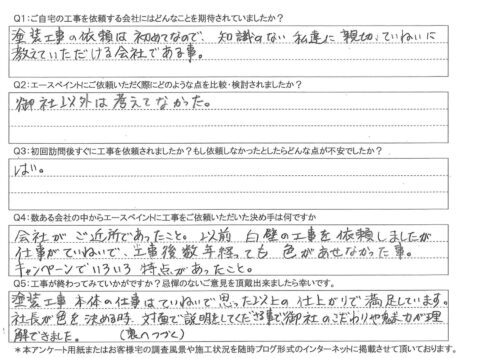 Q1:ご自宅の工事を依頼する会社にはどんなことを期待されていましたか?
塗装工事の依頼は初めてなので、知識のない私達に親切、ていねいに
教えていただける会社である事。
Q2:エースペイントにご依頼いただく際にどのような点を比較・検討されましたか?
御社以外は考えてなかった。
Q3:初回訪問後すぐに工事を依頼されましたか?もし依頼しなかったとしたらどんな点が不安でしたか?
はい。
Q4:数ある会社の中からエースペイントに工事をご依頼いただいた決め手は何ですか
会社がご近所であったこと。以前 白壁の工事を依頼しましたが
仕事がていねいで、工事後数年経っても色があせなかった事。
キャンペーンでいろいろ特点があったこと。
Q5:工事が終わってみていかがですか?忌憚のないご意見を頂戴出来ましたら幸いです。
塗装工事本体の仕事はていねいで思った以上の仕上がりで満足しています。
社長が色を決める時、対面で説明をしてくださる事で、御社のこだわりや魅力が理
解できました。(裏へつづく)
*本アンケート用紙またはお客様宅の調査風景や施工状況を随時ブログ形式のインターネットに掲載させて頂いております。